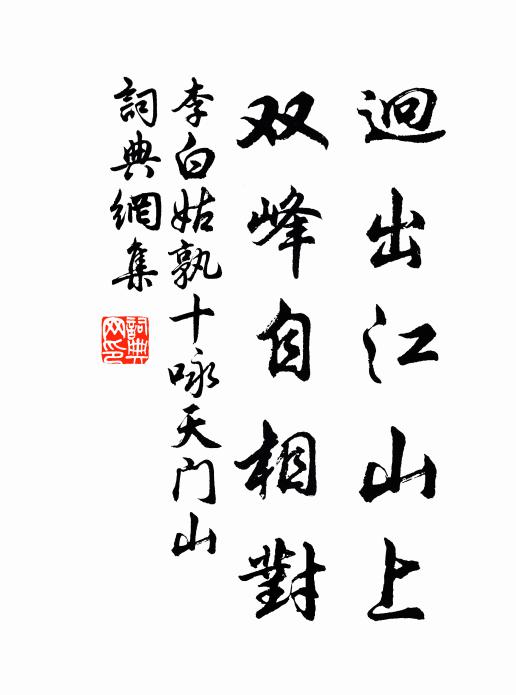 迥出江山上
双峰自相對
李白姑孰十咏天门山
詞典網集
詞典网印